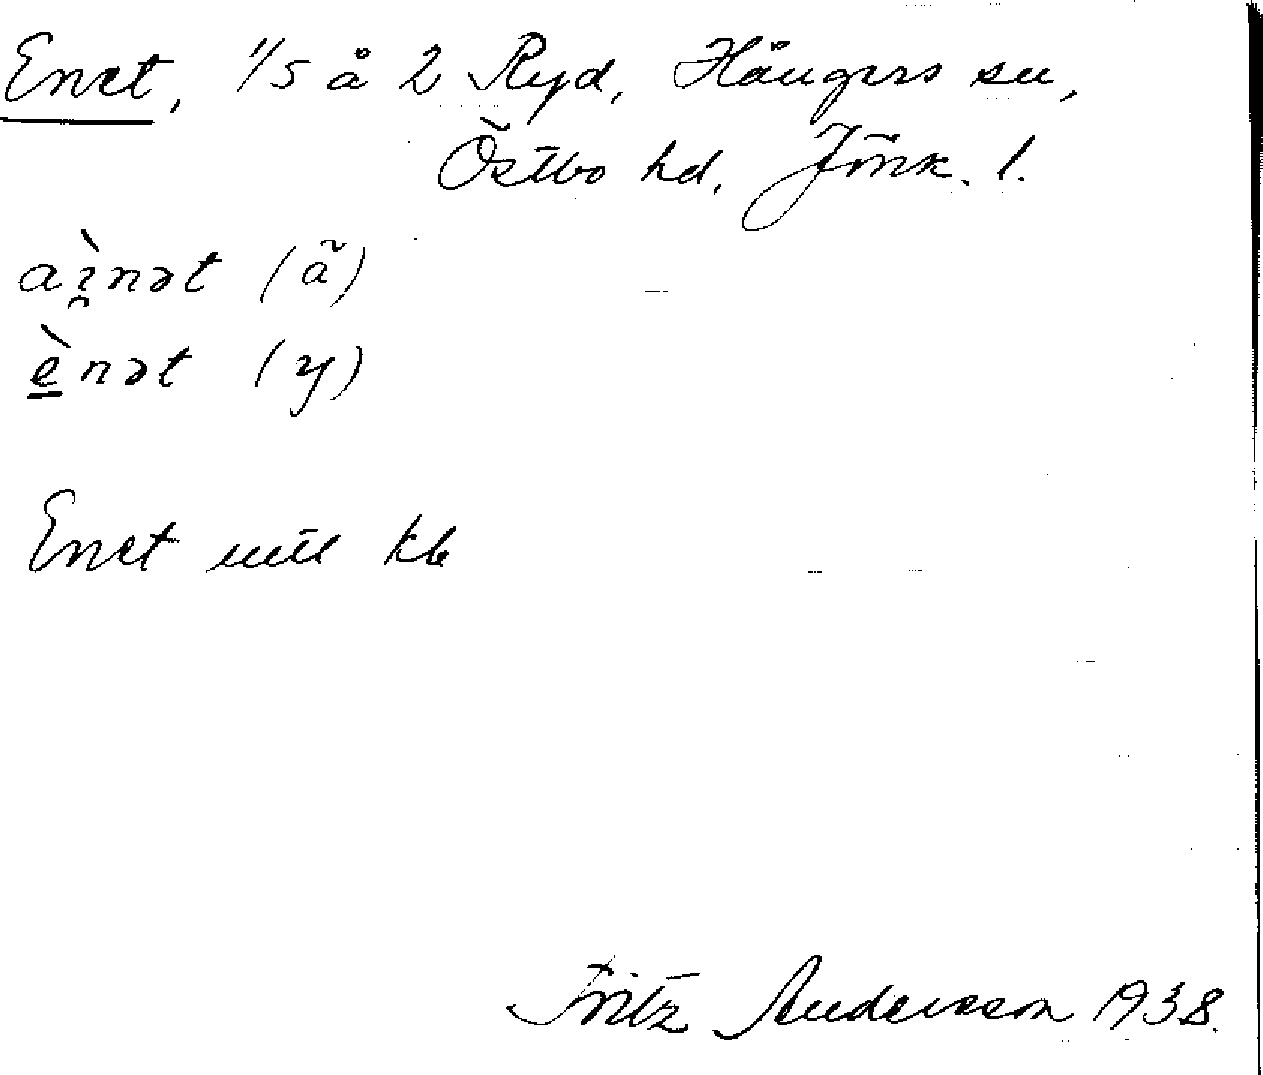 Enet, 1/5 å 2 Ryd, Hångers sn,
Östbo hd. Jönk. l.
a̯ì̯nət (ä)
ènət (y)
Enet enl kb
Fritz Andersson 1938.